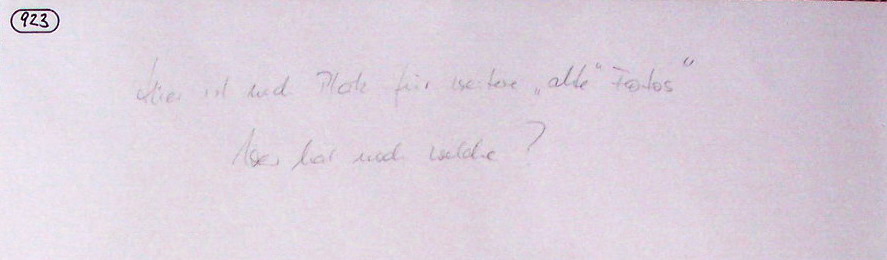 923
Hier ist noch Platz für weitere „alte“ Fotos“
Wer hat noch welche?